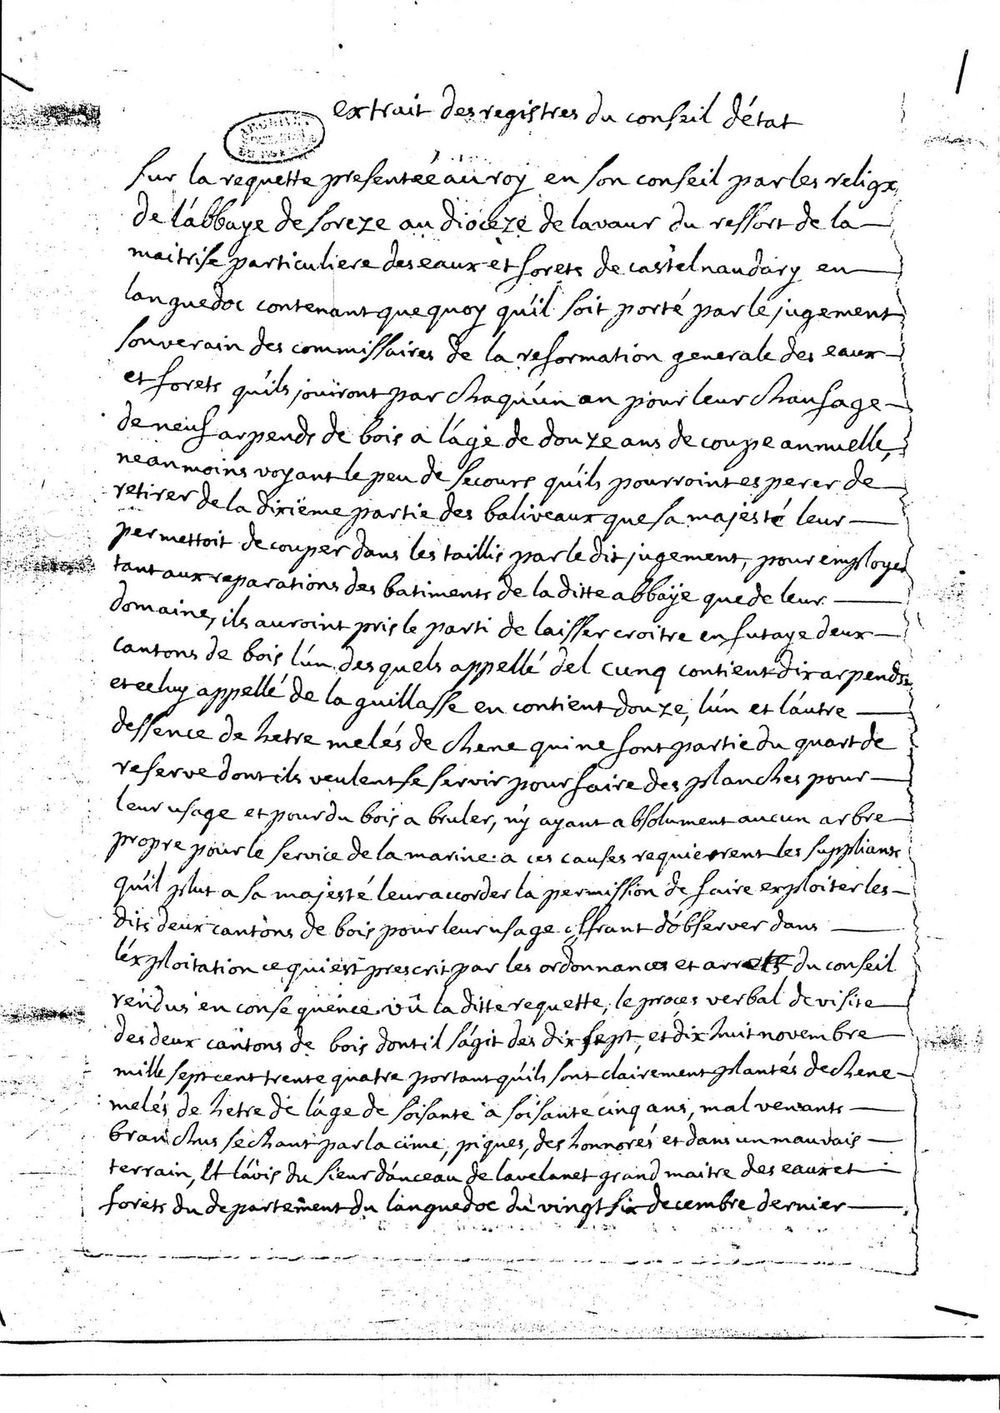 extrait des registres du conseil d'état
sur la requette presentéé au roy en son conseil par les religx
de l'abbaye de soreze au dioceze de lavaur du ressort de la
maitrise particuliere des eaux et forets de castelnaudary en
languedoc contenant que quoy qu'il soit porté par le jugement
souverain des commissaires de la reformation generale des eaux
et forets qu'ils joüiront par chaqu'un an pour leur chaufage
de neuf arpends de bois a l'age de douze ans de coupe annuelle,
neanmoins voyant le peu de secours qu'ils pourroint esperer de
retirer de la dixiême partie des baliveaux que sa majesté leur
permettoit de couper dans les taillis par le dit jugement, pour employer
tant aux reparations des batiments de la ditte abbaÿe que de leur
domaine, ils auroint pris le parti de laisser croitre en futaye deux
cantons de bois l'un desquels appellé del cunq contient dix arpends
et celuy appellé de la guillasse en contient douze, l'un et l'autre
dessence de hetre melés de chene qui ne font partie du quart de
reserve dont ils veulent se servir pour faire des planches pour
leur usage et pour du bois a bruler, n'y ayant absolument aucun arbre
propre pour le service de la marine. a ces causes requierent les suppliants
qu'il plut a sa majesté leur accorder la permission de faire exploiter les
dits deux cantons de bois pour leur usage offrant d'observer dans
l'exploitation ce qui est prescrit par les ordonnances et arrets du conseil
rendus en consequence. vû la ditte requette, le proces verbal de visite
des deux cantons de bois dont il s'agit des dix sept, et dix huit novembre
mille sept cent trente quatre portant qu'ils sont clairement plantés de chene
melés de hetre de l'age de soisante a soisante cinq ans, mal venants
branchus sechant par la cime, piques, deshonnorés et dans un mauvais
terrain, Et l'avis du sieur d'anceau de lavelanet grand maitre des eaux et
forets du departement du languedoc du vingt six decembre dernier